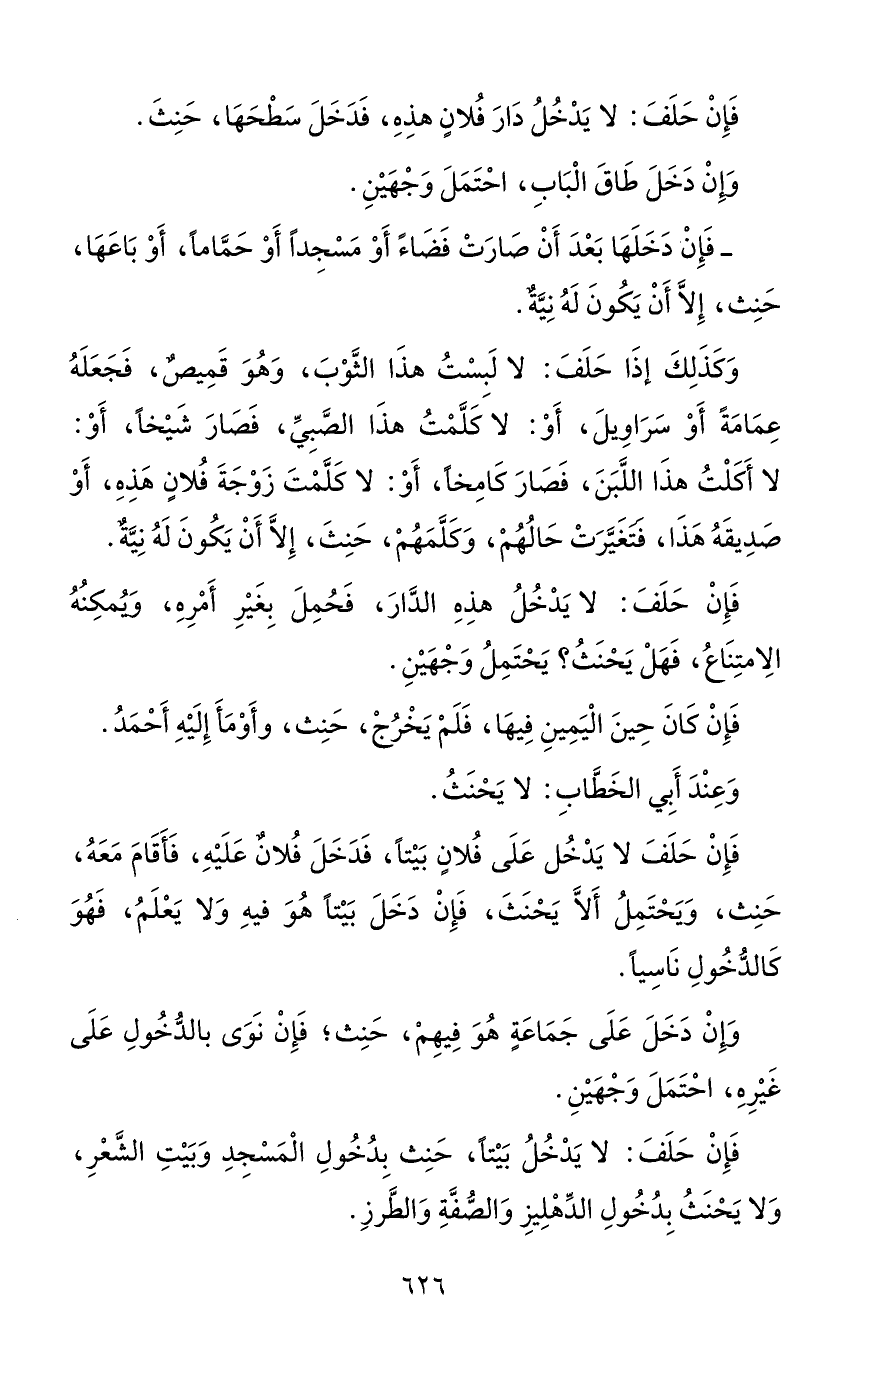 فَإِنْ حَلَفَ: لا يَدْخُلُ دَارَ فُلانٍ هذِهِ، فَدَخَلَ سَطْحَهَا، حَنِثَ.
وَإِنْ دَخَلَ طَاقَ الْبَابِ، احْتَمَلَ وَجْهَيْنِ.
ـ فَإِنْ دَخَلَهَا بَعْدَ أَنْ صَارَتْ فَضَاءً أَوْ مَسْجِداً أَوْ حَمَّاماً، أَوْ بَاعَهَا،
حَنِث، إِلاَّ أَنْ يَكُونَ لَهُ نِيَّةٌ.
وَكَذَلِكَ إذَا حَلَفَ: لا لَبِسْتُ هذَا الثَّوْبَ، وَهُوَ قَمِيصٌ، فَجَعَلَهُ
عِمَامَةً أَوْ سَرَاوِيلَ، أَوْ: لا كَلَّمْتُ هذَا الصَّبِيِّ، فَصَارَ شَيْخاً، أَوْ:
لا أَكَلْتُ هذَا اللَّبَنَ، فَصَارَ كَامِخاً، أَوْ: لا كَلَّمْتَ زَوْجَةَ فُلانٍ هَذِهِ، أَوْ
صَدِيقَهُ هَذَا، فَتَغَيَّرَتْ حَالُهُمْ، وَكَلَّمَهُمْ، حَنِثَ، إِلاَّ أَنْ يَكُونَ لَهُ نِيَّةٌ.
فَإِنْ حَلَفَ: لا يَدْخُلُ هذِهِ الدَّارَ، فَحُمِلَ بِغَيْرِ أَمْرِهِ، وَيُمكِنُهُ
الِامتِنَاعُ، فَهَلْ يَحْنَثُ؟ يَحْتَمِلُ وَجْهَيْنِ.
فَإِنْ كَانَ حِينَ الْيَمِينِ فِيهَا، فَلَمْ يَخْرُجْ، حَنِث، وأَوْمَأَ إِلَيْهِ أَحْمَدُ.
وَعِنْدَ أَبِي الخَطَّابِ: لا يَحْنَثُ.
فَإِنْ حَلَفَ لا يَدْخُل عَلَى فُلانٍ بَيْتاً، فَدَخَلَ فُلانٌ عَلَيْهِ، فَأَقَامَ مَعَهُ،
حَنِث، وَيَحْتَمِلُ أَلاَّ يَحْنَثَ، فَإِنْ دَخَلَ بَيْتاً هُوَ فيهِ وَلا يَعْلَمُ، فَهُوَ
كَالدُّخُولِ نَاسِياً.
وَإِنْ دَخَلَ عَلَى جَمَاعَةٍ هُوَ فِيهِمْ، حَنِث؛ فَإِنْ نَوَى بالدُّخُولِ عَلَى
غَيْرِهِ، احْتَمَلَ وَجْهَيْنِ.
فَإِنْ حَلَفَ: لا يَدْخُلُ بَيْتاً، حَنِث بِدُخُولِ الْمَسْجِدِ وَبَيْتِ الشَّعْرِ،
وَلا يَحْنَثُ بِدُخُولِ الدِّهْلِيزِ وَالصُّفَّةِ وَالطَّرزِ.
٦٢٦